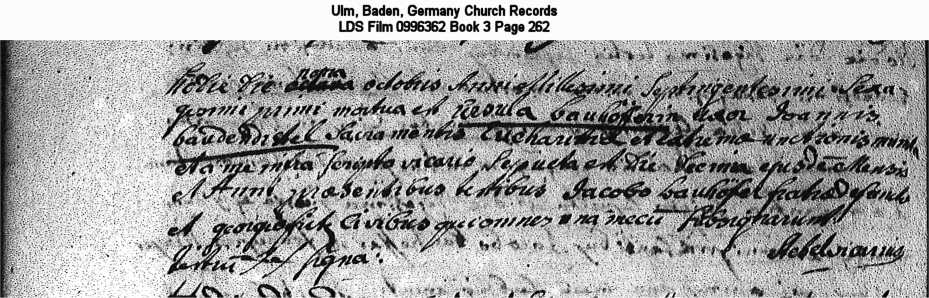 Ulm, Baden, Germany Church Records
LDS Film 0996362 Book 3 Page 262
Hodie die nona octobris Anni Millesimi Septingentesimi Sexa-
gesimi primi mortua est Ursula bauhoferin uxor Joannis
baudendistel Sacramentis Eucharistiae et extremae unctionis munita
et a me infra scripto vicario Sepulta est die decima ejusdem Mensis
et Anni praesentibus testibus Jacobo bauhofer fratre
et georgio civibus qui omnes una mecum
testium signa
vicarius